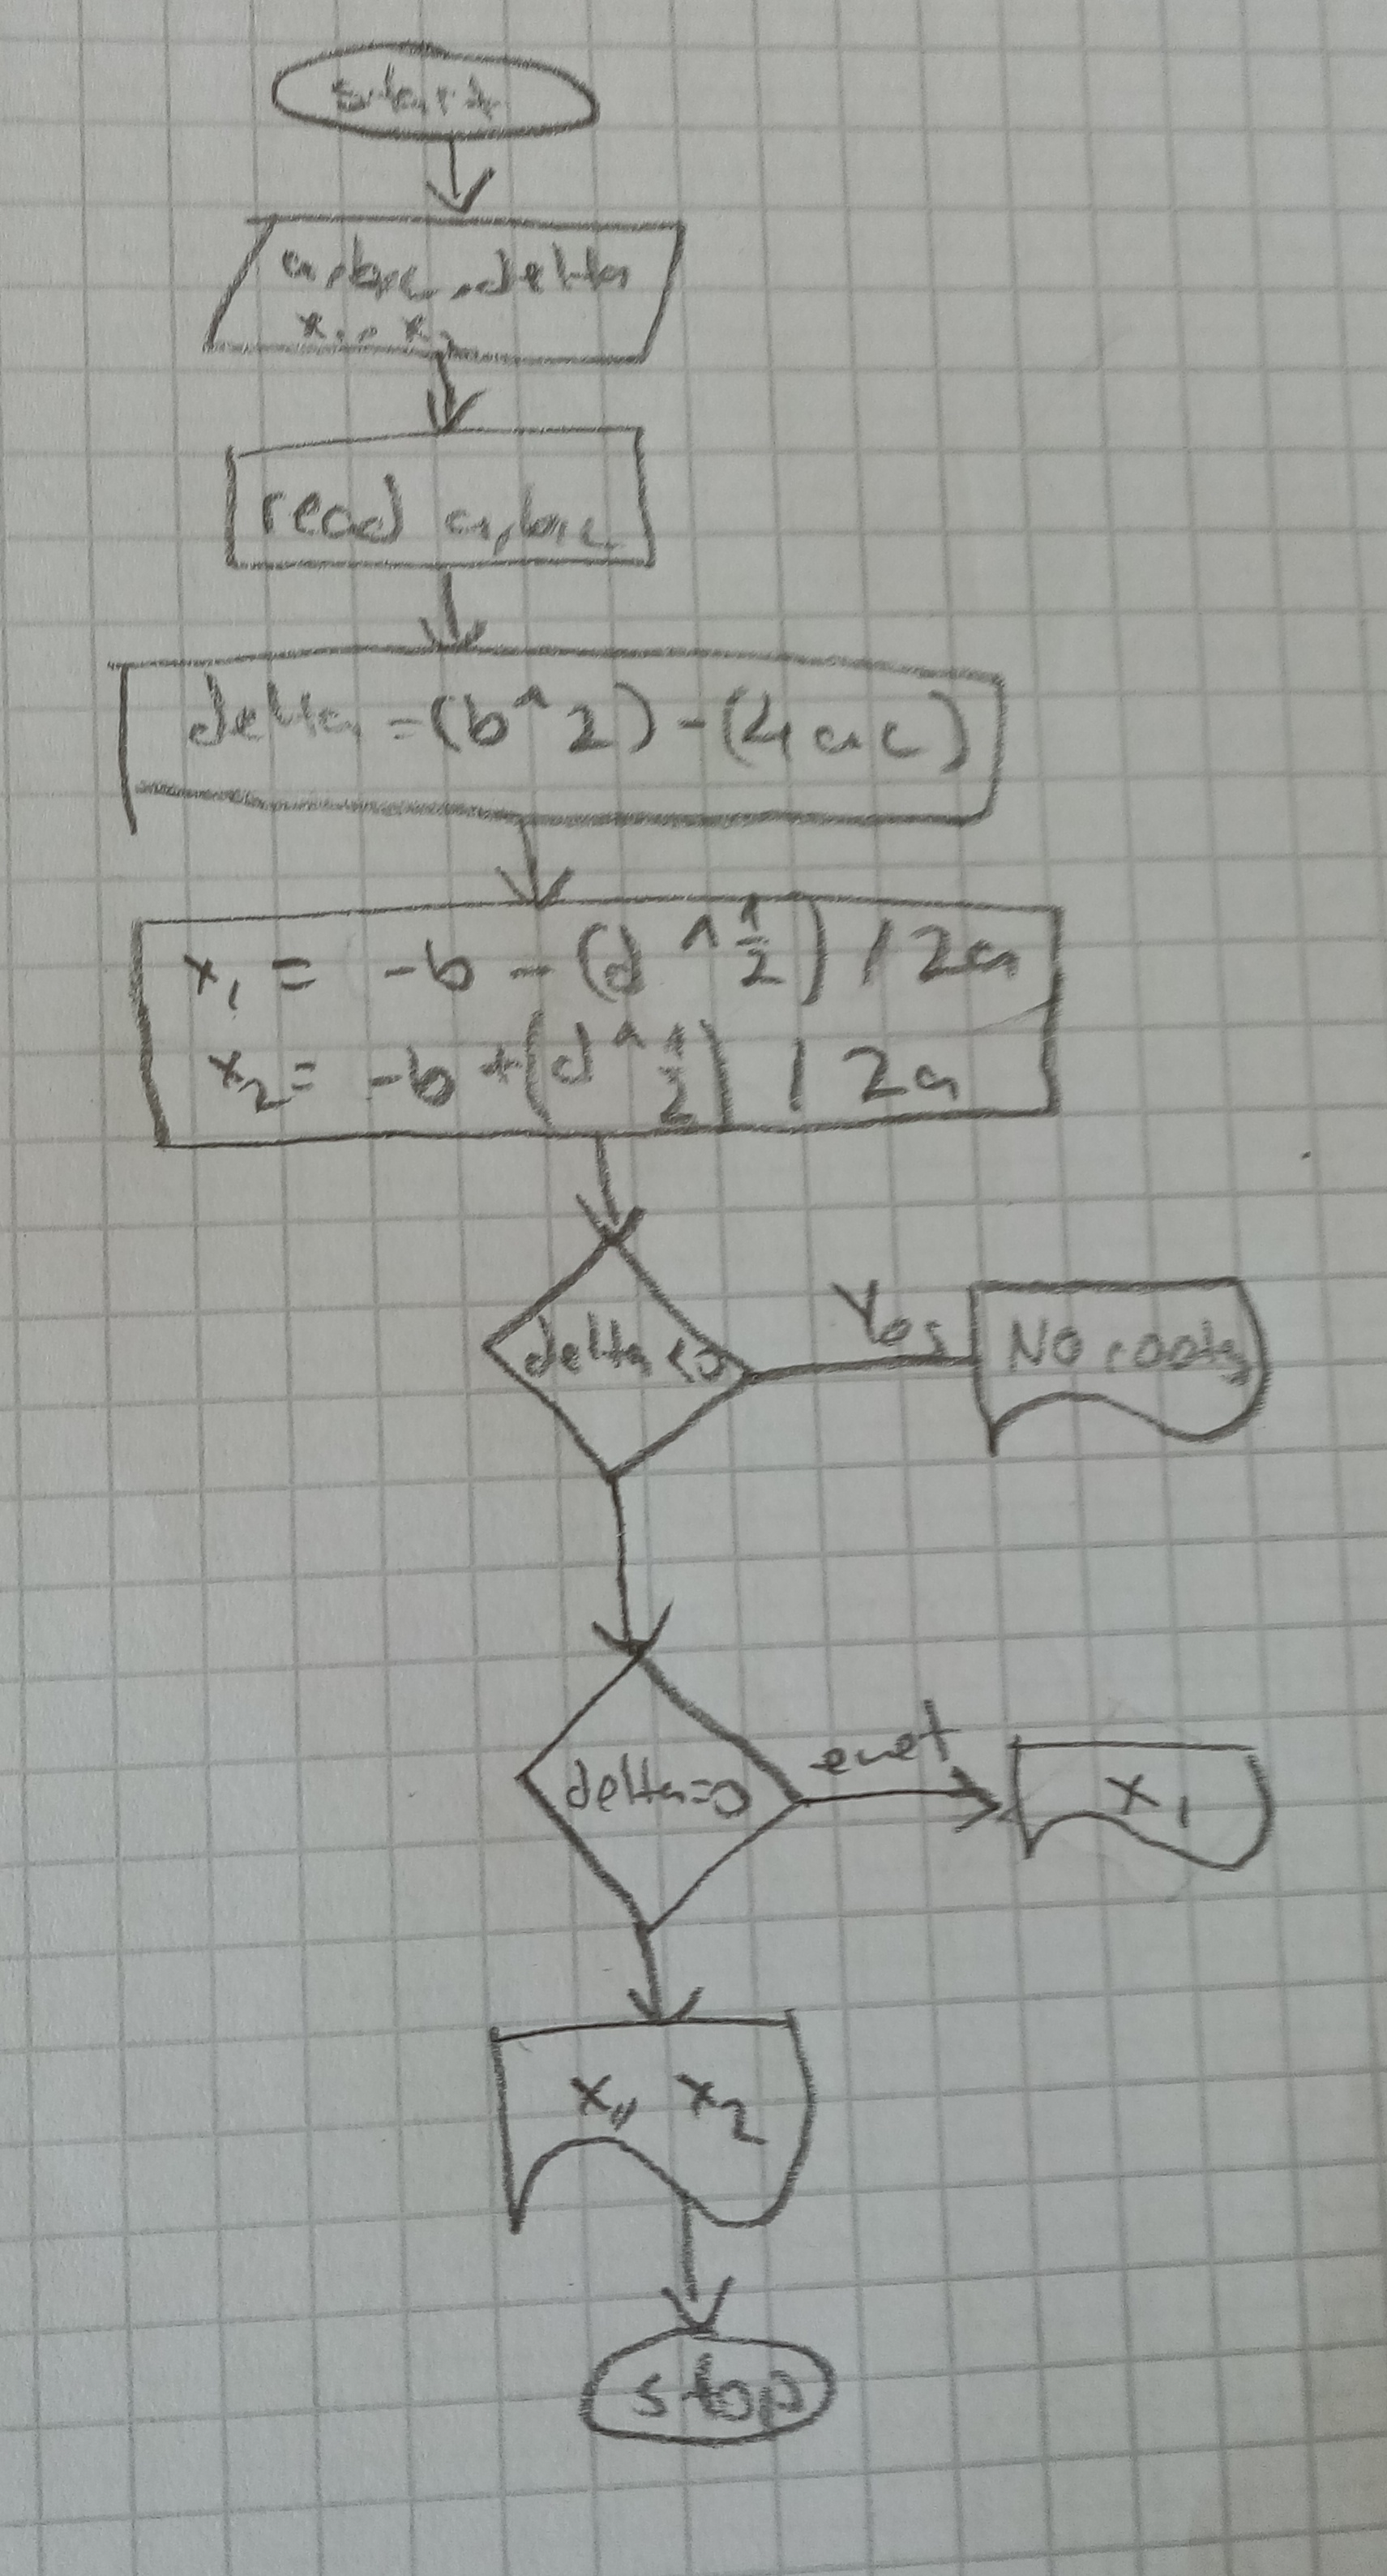 start
a,b,c,delta
x1, x2
read a,b,c
delta =(b^2)-(4ac)
x1 = -b-(d^1/2) / 2a
x2= -b+(d^1/2) / 2a
delta<0
Yes
No roots
delta=0
evet
x1
x1, x2
stop